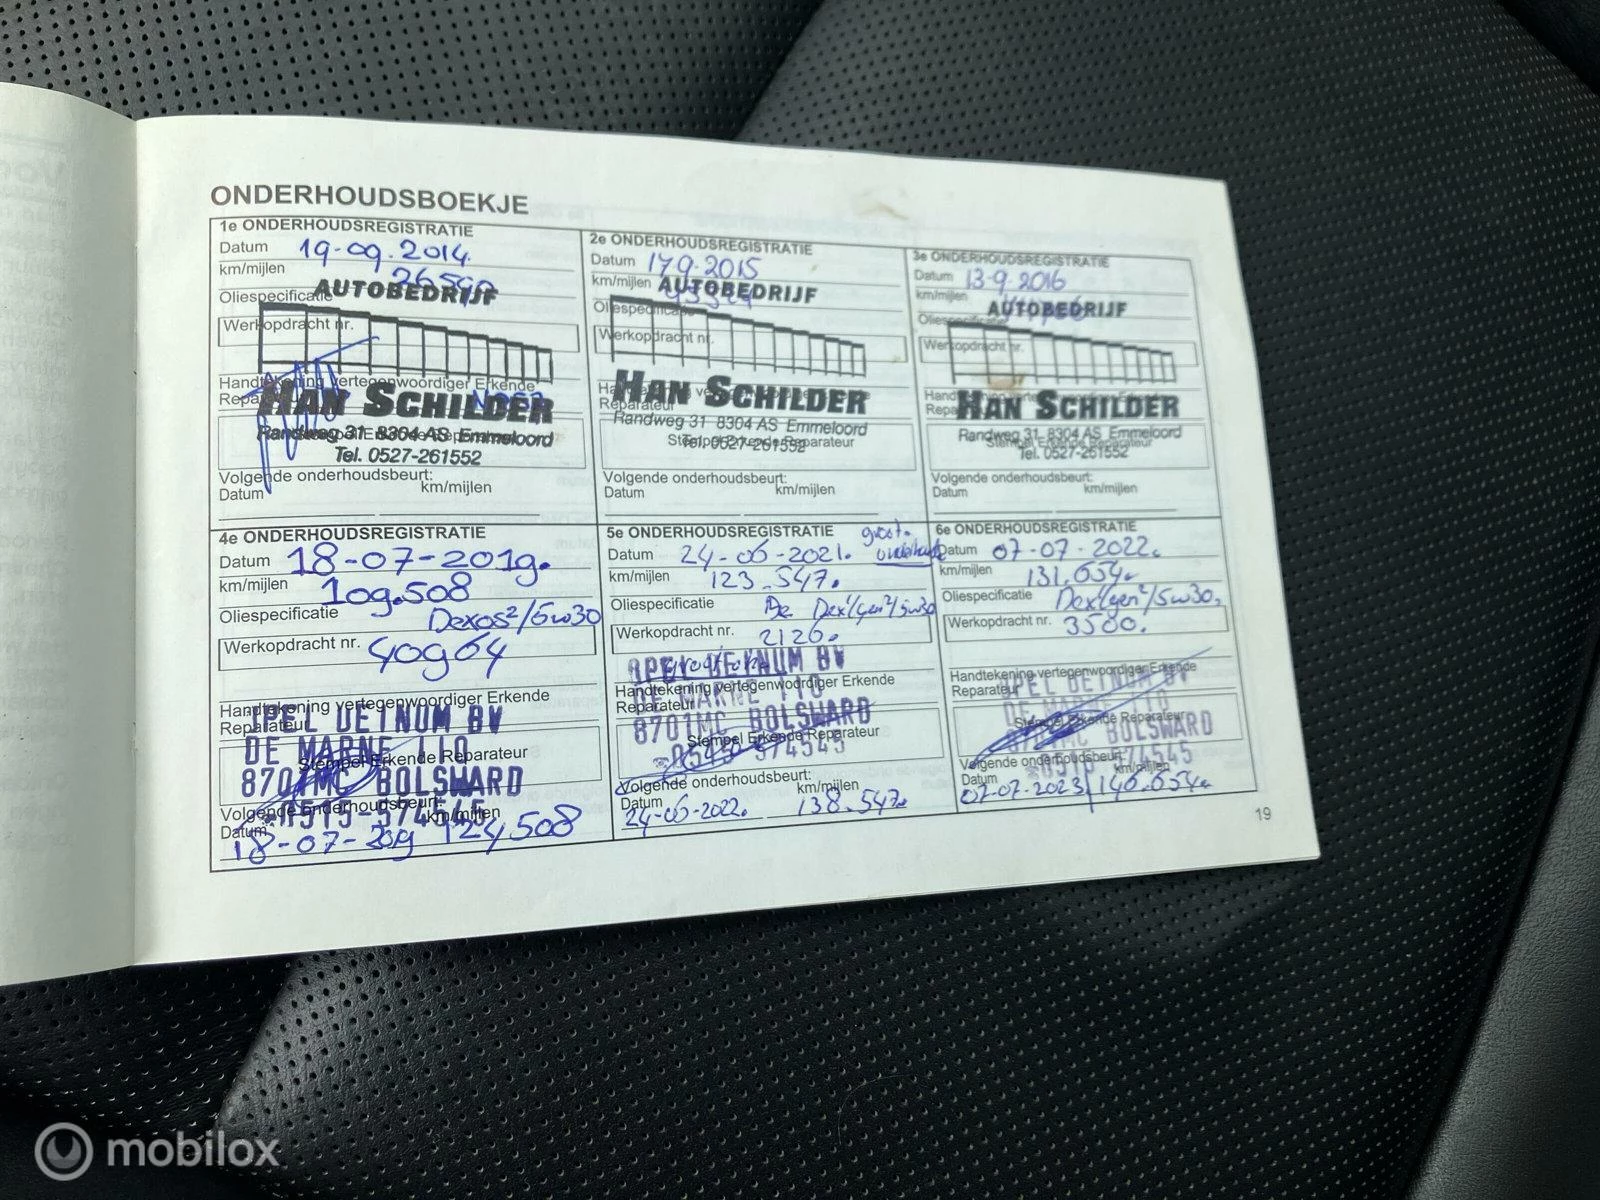 ONDERHOUDSBOEKJE
1e ONDERHOUDSREGISTRATIE
Datum 19-09-2014.
km/mijlen
Oliespecificatie
AUTOBEDRIJF
Werkopdracht nr.
Handtekening vertegenwoordiger Erkende
Reparateur
HAN SCHILDER
Randweg 31 8304 AS Emmeloord
Stempel Erkende Reparateur
Tel. 0527-261552
Volgende onderhoudsbeurt:
Datum km/mijlen
2e ONDERHOUDSREGISTRATIE
Datum 17-9-2015
km/mijlen
AUTOBEDRIJF
Oliespecificatie
Werkopdracht nr.
Handtekening vertegenwoordiger Erkende
Reparateur
HAN SCHILDER
Randweg 31 8304 AS Emmeloord
Stempel Erkende Reparateur
Tel. 0527-261552
Volgende onderhoudsbeurt:
Datum km/mijlen
3e ONDERHOUDSREGISTRATIE
Datum 13-9-2016
km/mijlen
AUTOBEDRIJF
Oliespecificatie
Werkopdracht nr.
Handtekening vertegenwoordiger Erkende
Reparateur
HAN SCHILDER
Randweg 31 8304 AS Emmeloord
Stempel Erkende Reparateur
Tel. 0527-261552
Volgende onderhoudsbeurt:
Datum km/mijlen
4e ONDERHOUDSREGISTRATIE
Datum 18-07-2019.
km/mijlen 109.508
Oliespecificatie Dexos²/5w30
Werkopdracht nr. 40964
Handtekening vertegenwoordiger Erkende
Reparateur
OPEL DETNUM BV
DE MARNE 110
Stempel Erkende Reparateur
8701MC BOLSWARD
0515-574545
Volgende onderhoudsbeurt: km/mijlen
Datum 18-07-2019 124508
5e ONDERHOUDSREGISTRATIE groot.
Datum 24-06-2021. onderhoud
km/mijlen 123.547.
Oliespecificatie Dex'/gen²/5w30
Werkopdracht nr. 2126.
OPEL DETNUM BV
Handtekening vertegenwoordiger Erkende
Reparateur
DE MARNE 110
8701MC BOLSWARD
Stempel Erkende Reparateur
574545
Volgende onderhoudsbeurt:
Datum km/mijlen
24-06-2022. 138.547.
6e ONDERHOUDSREGISTRATIE
Datum 07-07-2022.
km/mijlen 131.654.
Oliespecificatie Dex'/gen²/5w30.
Werkopdracht nr. 3500.
Handtekening vertegenwoordiger Erkende
Reparateur
OPEL DETNUM BV
DE MARNE 110
Stempel Erkende Reparateur
8701MC BOLSWARD
574545
Volgende onderhoudsbeurt:
Datum km/mijlen
07-07-2023 146.654.
19
mobilox